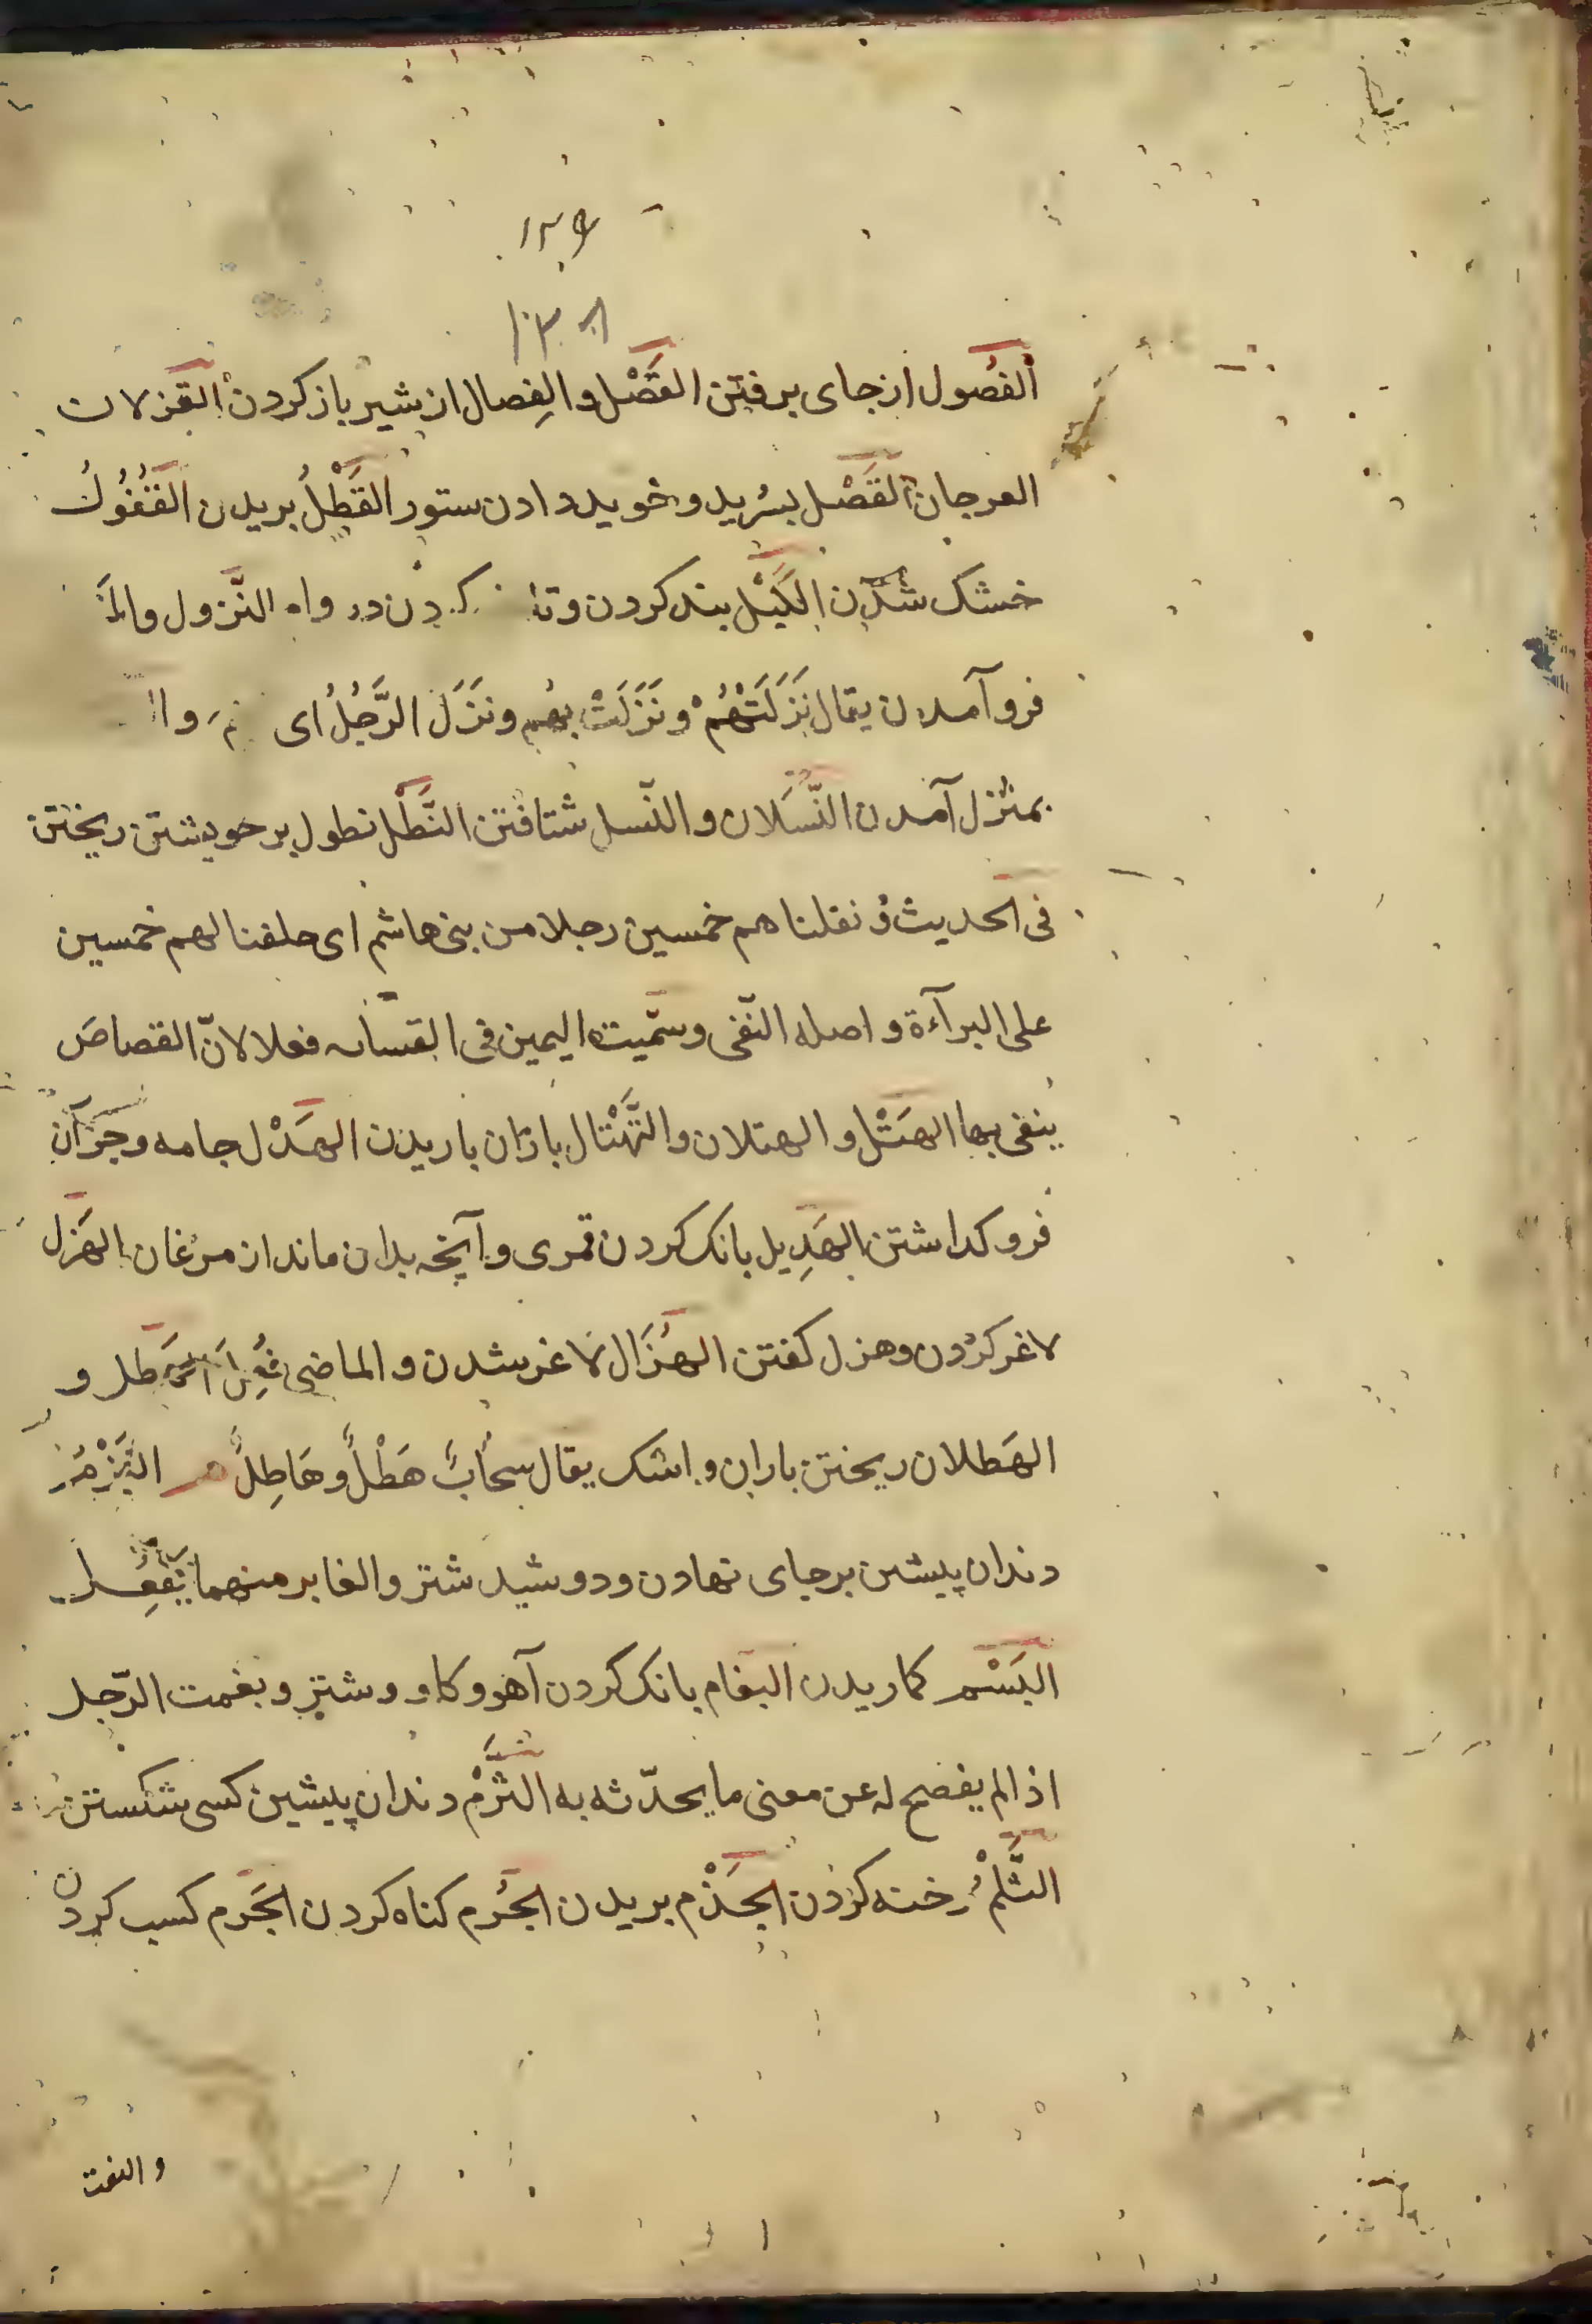 ۱۳۹
۱۳۸
الفُصول از جای برفتن الفَصْل والفِصال از شیر باز کردن القزلان
العرجان القَصْل ببُرید و خوید دادن ستور القَطْلُ بریدن القُفُولُ
خشک شدن الکَبْل بند کردن و کردن در وام النَّزول والم
فرو آمدن یقال نَزَلَتْهُمْ و نَزَلَتْ بهم و نَزَلَ الرَّجُلُ ای
بمنزل آمدن النَّسَلان والنّسل شتافتن النَّطْل نطول بر خویشتن ریختن
فی الحدیث ونفلناهم خمسین رجلا من بنی هاشم ای حلفنا لهم خمسین
علی البرآءة و اصله النّفی وسمّیت الیمین فی القسامه فعلا لانّ القصاصَ
ینفی بها الهَتْل و الهتلان والتَّهْتال باران باریدن الهَدْل جامه وجز آن
فرو کداشتن الهَدِیل بانک کردن قمری و آنچه بدان ماند از مرغان الهَزل
لاغر کردن وهزل کفتن الهُزَال لاغر شدن و الماضی فُعِلَ الهَطل و
الهَطلان ریختن باران و اشک یقال سحابٌ هَطْلٌ و هَاطِلٌ م البَزْمُ
دندان پیشین بر جای نهادن ودوشید شتر والغابر منهما یَفْعِل
البَسْم کماریدن البغام بانک کردن آهو و کاو و شتر و بغمت الرّجل
اذا لم یفصح له عن معنی ما یحدّثه به الثَّرْمُ دندان پیشین کسی شکستن
الثَّلْمُ رخنه کردن الجَذْم بریدن الجُرم کناه کردن الجَرم کسب کردن
والنعت